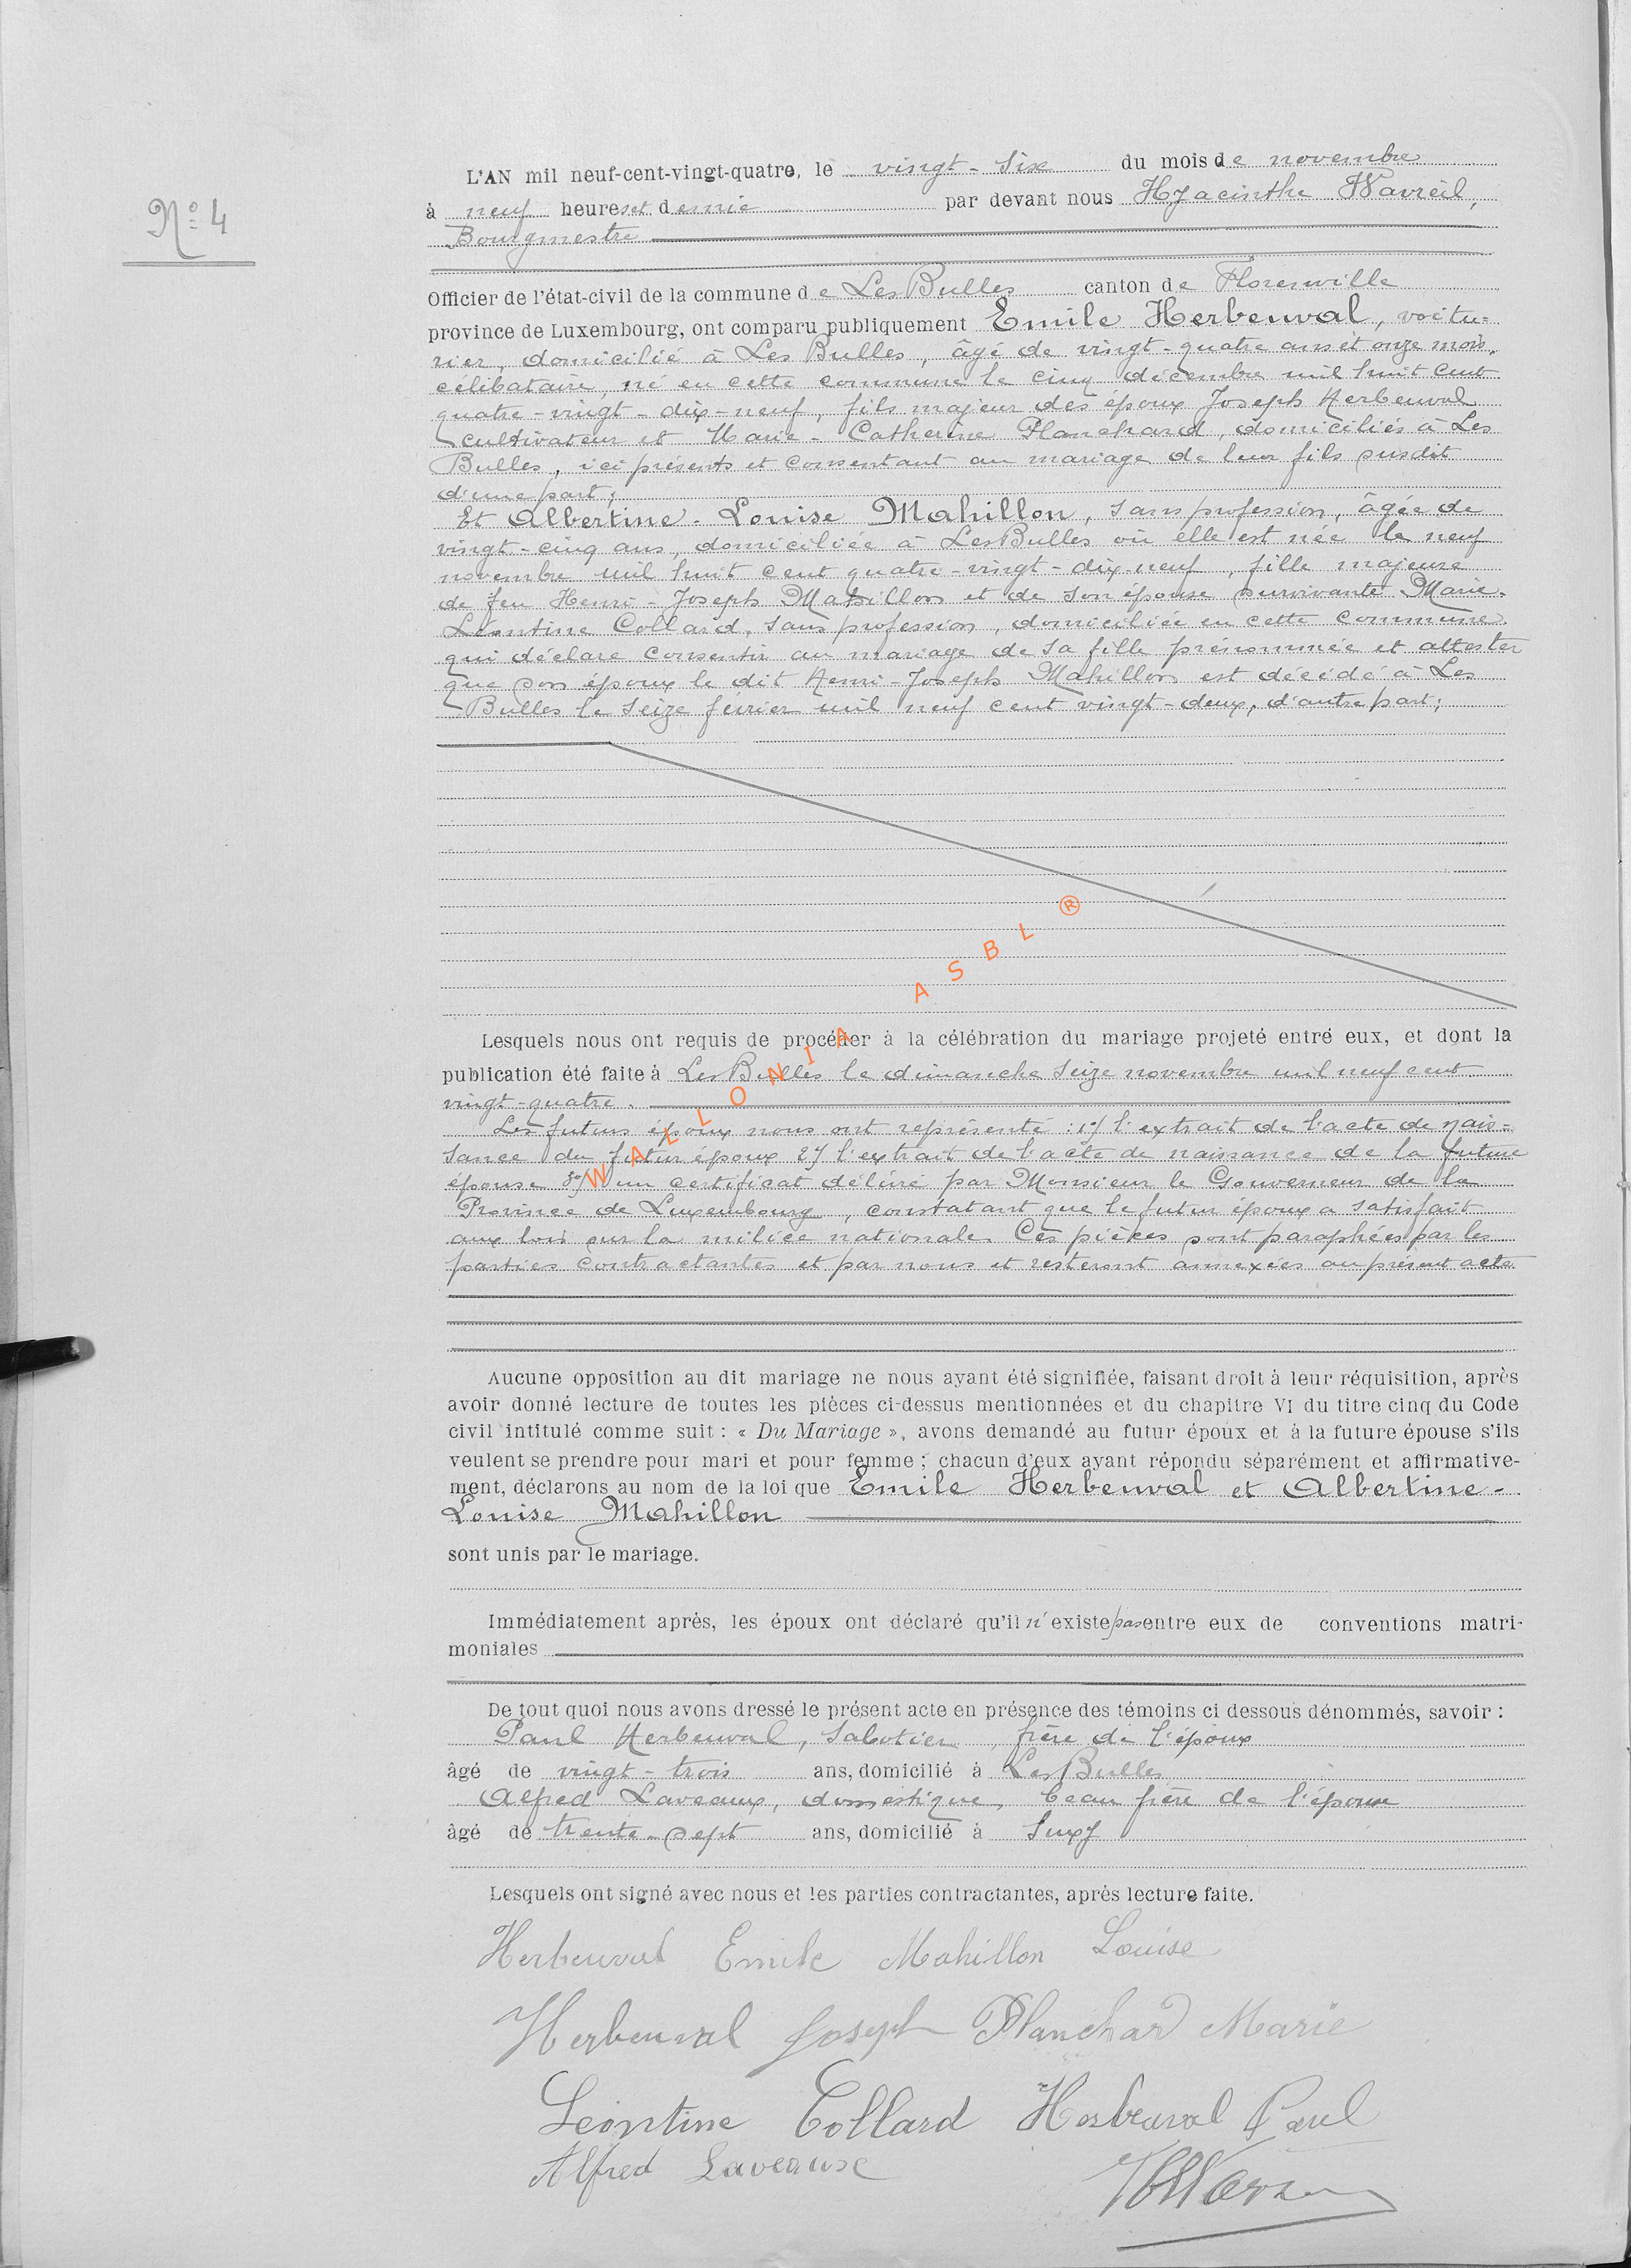 N° 4
L'AN mil neuf-cent-vingt-quatre, le vingt-six du mois de novembre
à neuf heures et demie par devant nous Hyacinthe Wavreil,
Bourgmestre
Officier de l'état-civil de la commune de Les Bulles canton de Florenville
province de Luxembourg, ont comparu publiquement Emile Herbeuval, voitu=
rier, domicilié à Les Bulles, âgé de vingt-quatre ans et onze mois,
célibataire, né en cette commune le cinq décembre mil huit cent
quatre-vingt-dix-neuf, fils majeur des époux Joseph Herbeuval
cultivateur et Marie-Catherine Planchard, domiciliés à Les
Bulles, ici présents et consentant au mariage de leur fils susdit
d'une part;
Et Albertine-Louise Mahillon, sans profession, âgée de
vingt-cinq ans, domiciliée à Les Bulles où elle est née le neuf
novembre mil huit cent quatre-vingt-dix-neuf, fille majeure
de feu Henri-Joseph Mahillon et de son épouse survivante Marie-
Léontine Collard, sans profession, domiciliée en cette commune
qui déclare consentir au mariage de sa fille prénommée et attester
que son époux le dit Henri-Joseph Mahillon est décédé à Les
Bulles le seize février mil neuf cent vingt-deux, d'autre part;
Lesquels nous ont requis de procéder à la célébration du mariage projeté entre eux, et dont la
publication été faite à Les Bulles le dimanche seize novembre mil neuf cent
vingt-quatre.
Les futurs époux nous ont représenté : 1°/ l'extrait de l'acte de nais=
sance du futur époux 2°/ l'extrait de l'acte de naissance de la future
épouse 3°/ un certificat délivré par Monsieur le Gouverneur de la
Province de Luxembourg, constatant que le futur époux a satisfait
aux lois sur la milice nationale. Ces pièces sont paraphées par les
parties contractantes et par nous et resteront annexées au présent acte
WALLONIA ASBL ®
Aucune opposition au dit mariage ne nous ayant été signifiée, faisant droit à leur réquisition, après
avoir donné lecture de toutes les pièces ci-dessus mentionnées et du chapitre VI du titre cinq du Code
civil intitulé comme suit : « Du Mariage », avons demandé au futur époux et à la future épouse s'ils
veulent se prendre pour mari et pour femme ; chacun d'eux ayant répondu séparément et affirmative-
ment, déclarons au nom de la loi que Emile Herbeuval et Albertine-
Louise Mahillon
sont unis par le mariage.
Immédiatement après, les époux ont déclaré qu'il n'existe pas entre eux de conventions matri-
moniales
De tout quoi nous avons dressé le présent acte en présence des témoins ci dessous dénommés, savoir :
Paul Herbeuval, sabotier, frère de l'époux
âgé de vingt-trois ans, domicilié à Les Bulles
Alfred Laveaux, domestique, beau frère de l'épouse
âgé de trente-sept ans, domicilié à Suxy
Lesquels ont signé avec nous et les parties contractantes, après lecture faite.
Herbeuval Emile Mahillon Louise
Herbeuval Joseph Planchard Marie
Leontine Collard Herbeuval Paul
Alfred Laveaux